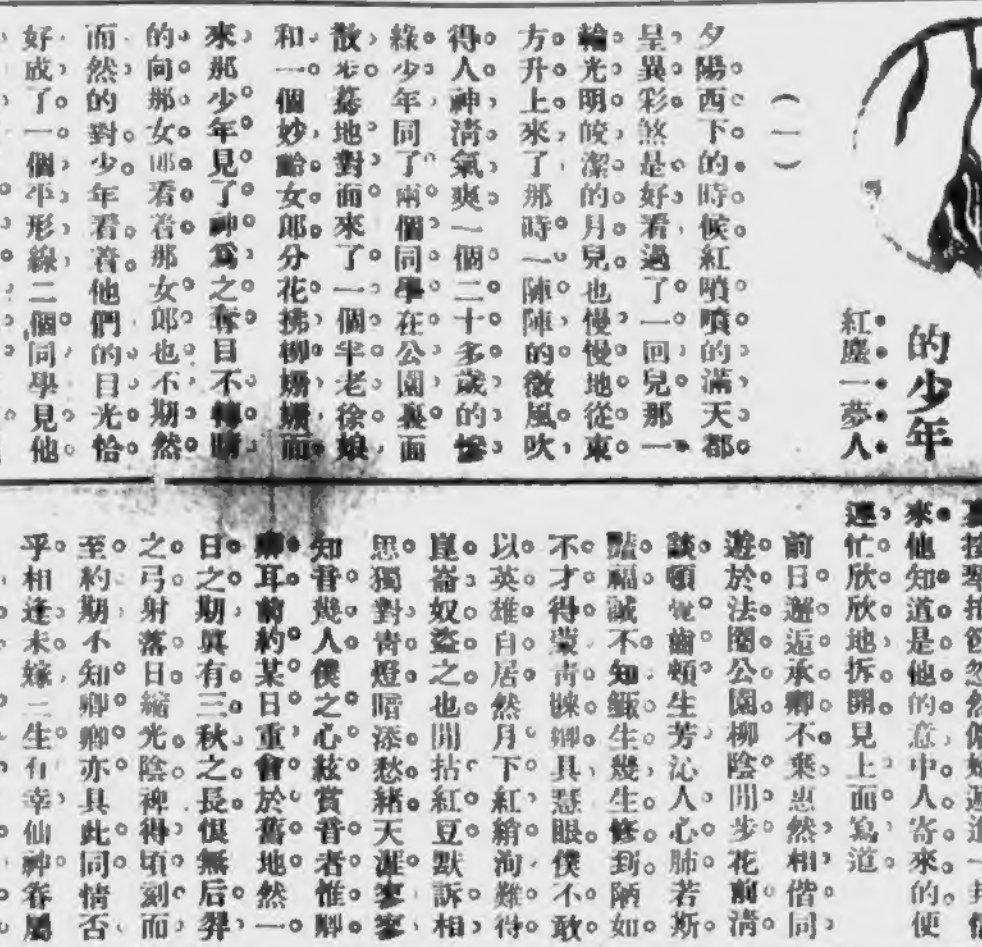 的少年
紅塵一夢人
（一）
夕陽西下的時候紅噴噴的滿天都
呈異彩煞是好看過了一回兒那一
輪光明皎潔的月兒也慢慢地從東
方升上來了那時一陣陣的微風吹
得人神清氣爽一個二十多歲的慘
綠少年同了兩個同學在公園裏面
散步驀地對面來了一個半老徐娘
和一個妙齡女郎分花拂柳姍姍而
來那少年見了神爲之奪目不轉睛
的向那女郎看着那女郎也不期然
而然的對少年看着他們的目光恰
好成了一個平形線二個同學見他
來他知道是他的意中人寄來的便
連忙欣欣地拆開見上面寫道
前日邂逅承卿不棄惠然相偕同
遊於法國公園柳陰閒步花前清
談頓覺齒頰生芳沁人心肺若斯
豔福誠不知鯫生幾生修到陋如
不才得蒙青睞卿具慧眼僕不敢
以英雄自居然月下紅綃洵難得
崑崙奴盜之也閒拈紅豆默訴相
思獨對青燈暗添愁緒天涯寥寥
知音幾人僕之心絃賞音者惟卿
耳前約某日重會於舊地然一
日之期眞有三秋之長恨無后羿
之弓射落日縮光陰裨得頃刻而
至約期不知卿卿亦具此同情否
乎相逢未嫁三生有幸仙神眷屬